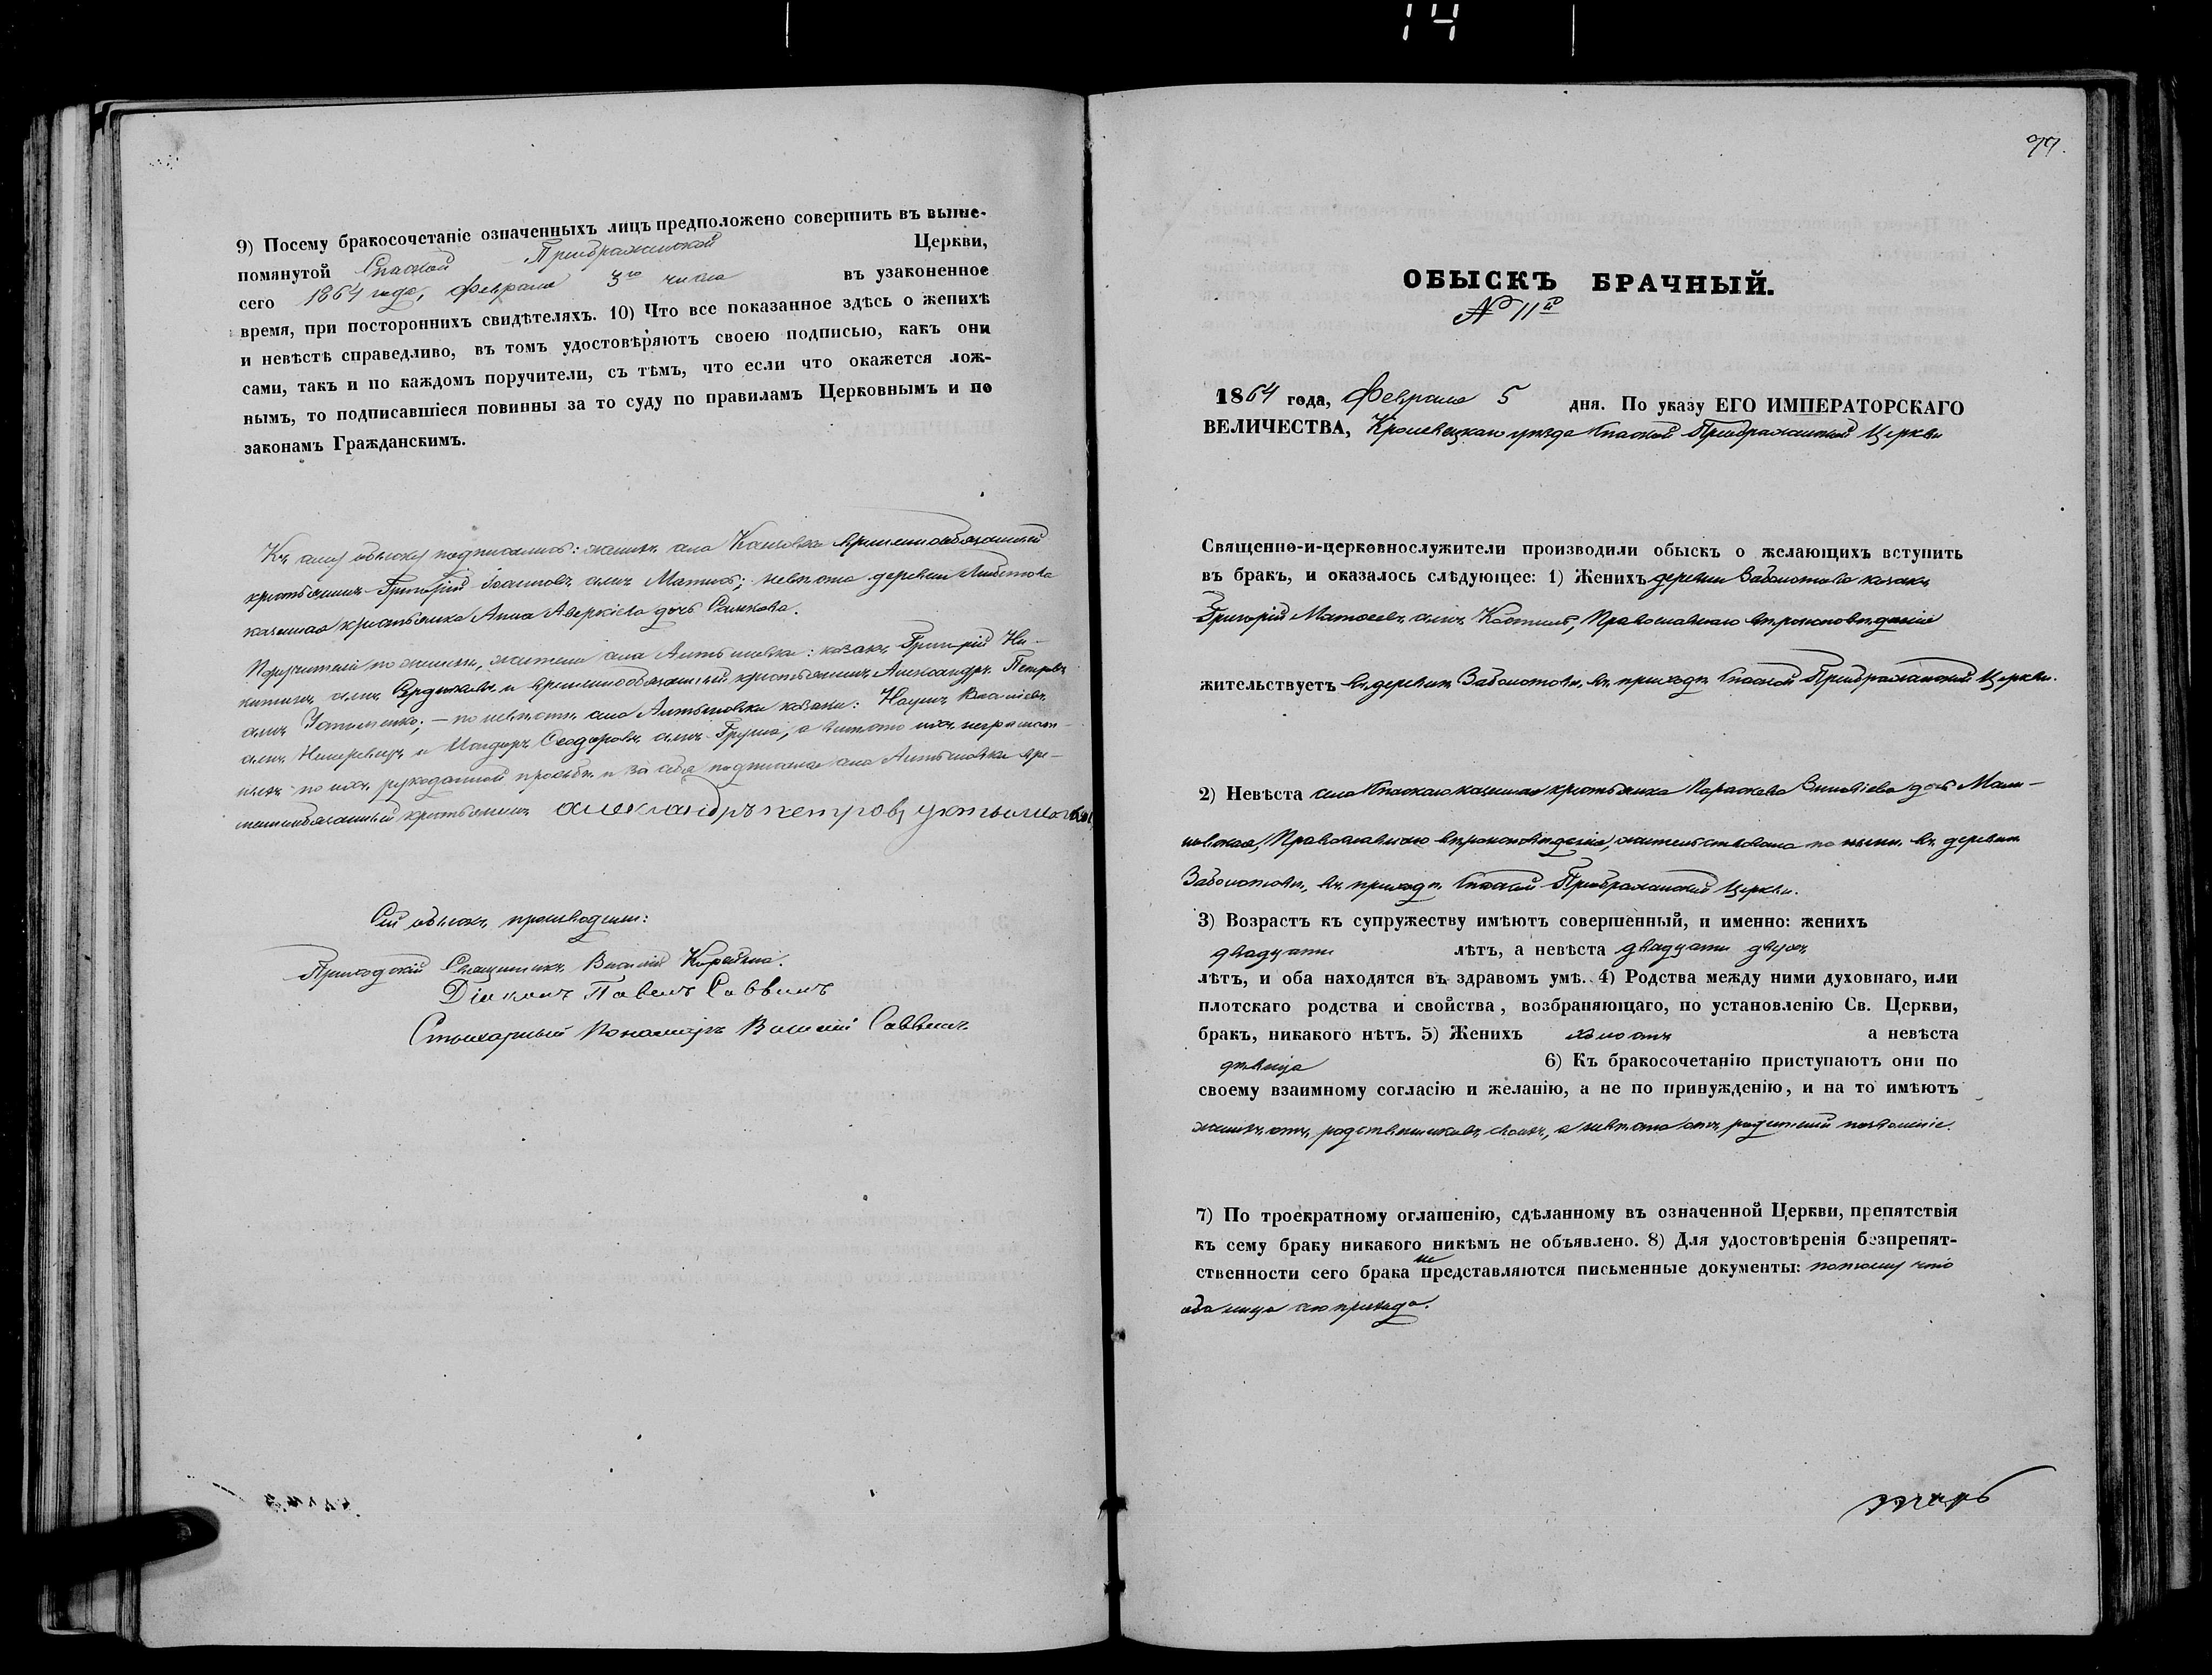 14
9) Посему бракосочетаніе означенныхъ лицъ предположено совершить въ выше-
помянутой Спаской Преображенской Церкви,
сего 1864 года, Февраля 3го числа въ узаконенное
время, при постороннихъ свидѣтеляхъ. 10) Что все показанное здѣсь о женихѣ
и невѣстѣ справедливо, въ томъ удостовѣряютъ своею подписью, какъ они
сами, такъ и по каждомъ поручители, съ тѣмъ, что если что окажется лож-
нымъ, то подписавшіеся повинны за то суду по правиламъ Церковнымъ и по
законамъ Гражданскимъ.
Къ сему обыску подписались: женихъ села временнообязанный
крестьянинъ Григорій Іоанновъ сынъ невѣста деревни
казенная крестьянка Анна Аверкіева дочь
Поручители по женихѣ, жители села козакъ Григорій Ни-
китинъ сынъ и временнообязанный крестьянинъ Александръ Петровъ
сынъ Устименко; — по невѣстѣ села козаки: Наумъ
сынъ и Исидоръ Ѳеодоровъ сынъ а вмѣсто ихъ неграмот-
ныхъ по ихъ рукоданной просьбѣ и за себя подписался села вре-
меннообязанный крестьянинъ александръ петровъ
Сей обыскъ производили:
Приходскій Священникъ Василій
Діаконъ Павелъ Саввичъ
Стихарный Пономарь Василій Саввичъ
99.
ОБЫСКЪ БРАЧНЫЙ.
№ 11й
1864 года, Февраля 5 дня. По указу ЕГО ИМПЕРАТОРСКАГО
ВЕЛИЧЕСТВА, Кролевецкаго уѣзда Спаской Преображенской Церкви
Священно-и-церковнослужители производили обыскъ о желающихъ вступить
въ бракъ, и оказалось слѣдующее: 1) Женихъ деревни Заболотова казакъ
Григорій Матѳеевъ сынъ Православнаго вѣроисповѣданія
жительствуетъ въ деревнѣ Заболотовѣ, въ приходѣ Спаской Преображенской Церкви.
2) Невѣста села Спаскаго казенная крестьянка Параскева Зиновіева дочь
Православнаго вѣроисповѣданія, жительствовала по нынѣ въ деревнѣ
Заболотовѣ, въ приходѣ Спаской Преображенской Церкви.
3) Возрастъ къ супружеству имѣютъ совершенный, и именно: женихъ
двадцати лѣтъ, а невѣста двадцати двухъ
лѣтъ, и оба находятся въ здравомъ умѣ. 4) Родства между ними духовнаго, или
плотскаго родства и свойства, возбраняющаго, по установленію Св. Церкви,
бракъ, никакого нѣтъ. 5) Женихъ холостъ а невѣста
дѣвица 6) Къ бракосочетанію приступаютъ они по
своему взаимному согласію и желанію, а не по принужденію, и на то имѣютъ
женихъ отъ родственниковъ своихъ, а невѣста отъ родителей позволеніе.
7) По троекратному оглашенію, сдѣланному въ означенной Церкви, препятствія
къ сему браку никакого никѣмъ не объявлено. 8) Для удостовѣренія безпрепят-
ственности сего брака не представляются письменные документы: потому что
оба лица сего прихода.